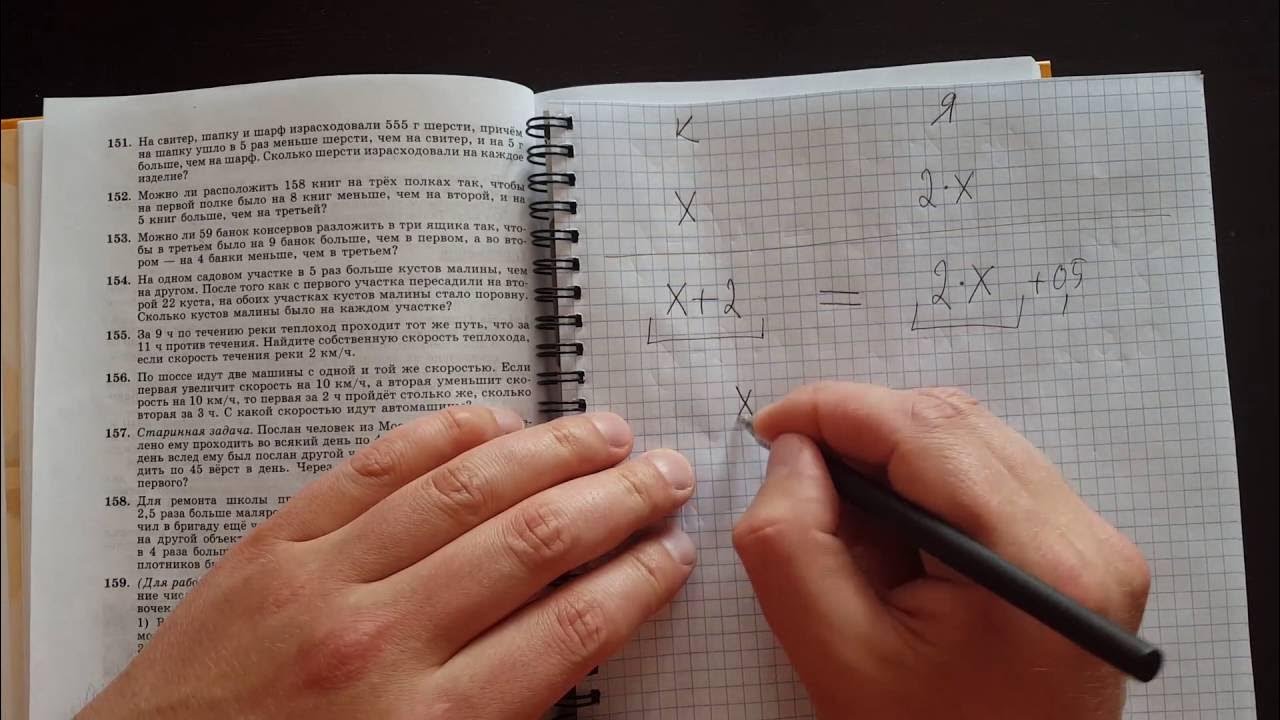 151. На свитер, шапку и шарф израсходовали 555 г шерсти, причём
на шапку ушло в 5 раз меньше шерсти, чем на свитер, и на 5 г
больше, чем на шарф. Сколько шерсти израсходовали на каждое
изделие?
152. Можно ли расположить 158 книг на трёх полках так, чтобы
на первой полке было на 8 книг меньше, чем на второй, и на
5 книг больше, чем на третьей?
153. Можно ли 59 банок консервов разложить в три ящика так, что-
бы в третьем было на 9 банок больше, чем в первом, а во вто-
ром — на 4 банки меньше, чем в третьем?
154. На одном садовом участке в 5 раз больше кустов малины, чем
на другом. После того как с первого участка пересадили на вто-
рой 22 куста, на обоих участках кустов малины стало поровну.
Сколько кустов малины было на каждом участке?
155. За 9 ч по течению реки теплоход проходит тот же путь, что за
11 ч против течения. Найдите собственную скорость теплохода,
если скорость течения реки 2 км/ч.
156. По шоссе идут две машины с одной и той же скоростью. Если
первая увеличит скорость на 10 км/ч, а вторая уменьшит ско-
рость на 10 км/ч, то первая за 2 ч пройдёт столько же, сколько
вторая за 3 ч. С какой скоростью идут автомашины?
157. Старинная задача. Послан человек из
лено ему проходить во всякий день по
день вслед ему был послан другой
дить по 45 вёрст в день. Через
первого?
158. Для ремонта школы
2,5 раза больше
чил в бригаду ещё
на другой
в 4 раза
плотников
159. (Для
ние
вочек
1)
К Я
X 2·X
X+2 = 2·X +05
X